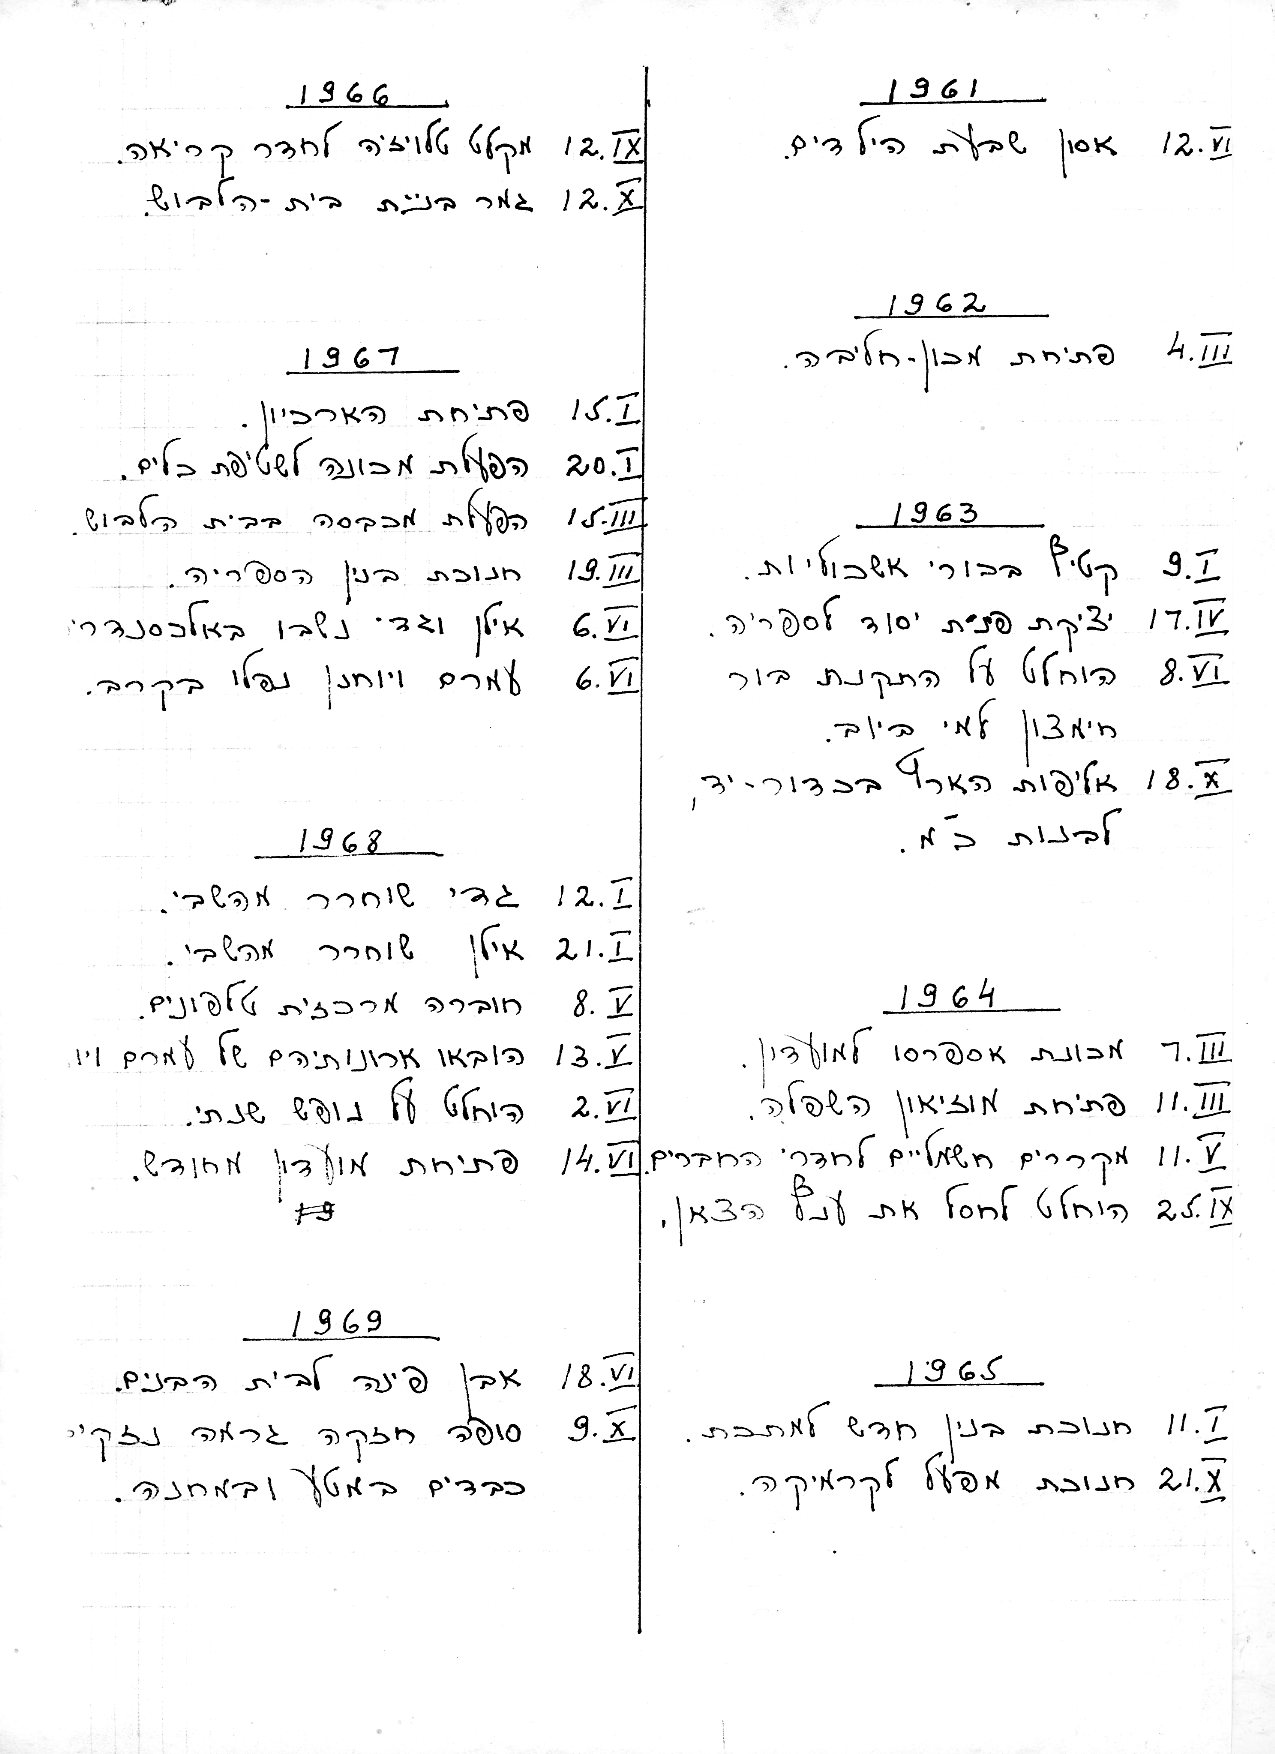 1961
12.VI אסון שבעת הילדים.
1962
4.III פתיחת מכון-חליבה.
1963
9.I קטיף בכורי אשכוליות.
17.IV יציקת פנית יסוד לספריה.
8.VI הוחלט על התקנת בור
חימצון למי ביוב.
18.X אליפות הארץ בכדור-יד,
לבנות כ"מ.
1964
7.III מכונת אספרסו למועדון.
11.III פתיחת מוזיאון השפלה.
11.V מקררים חשמליים לחדרי החברים.
25.IX הוחלט לחסל את ענף הצאן.
1965
11.I חנוכת בנין חדש למתכת.
21.X חנוכת מפעל לקרמיקה.
1966
12.IX מקלט טלויזיה לחדר קריאה.
12.X גמר בניית בית-הלבוש.
1967
15.I פתיחת הארכיון.
20.I הפעלת מכונה לשטיפת כלים.
15.III הפעלת מכבסה בבית הלבוש.
19.III חנוכת בנין הספריה.
6.VI אילן וגדי נשבו באלכסנדרי
6.VI עמרם ויוחנן נפלו בקרב.
1968
12.I גדי שוחרר מהשבי.
21.I אילן שוחרר מהשבי.
8.V חוברה מרכזית טלפונים.
13.V הובאו ארונותיהם של עמרם ויו
2.VI הוחלט על נופש שנתי.
14.VI פתיחת מועדון מחודש.
1969
18.VI אבן פינה לבית הבנים.
9.X סופה חזקה גרמה נזקי
כבדים במטע ובמחנה.